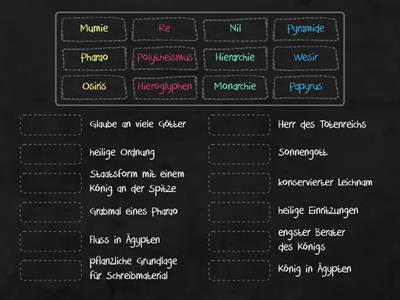 Mumie Re Nil Pyramide
Pharao Polytheismus Hierarchie Wesir
Osiris Hieroglyphen Monarchie Papyrus
Glaube an viele Götter
heilige Ordnung
Staatsform mit einem
König an der Spitze
Grabmal eines Pharao
Fluss in Ägypten
pflanzliche Grundlage
für Schreibmaterial
Herr des Totenreichs
Sonnengott
konservierter Leichnam
heilige Einritzungen
engster Berater
des Königs
König in Ägypten